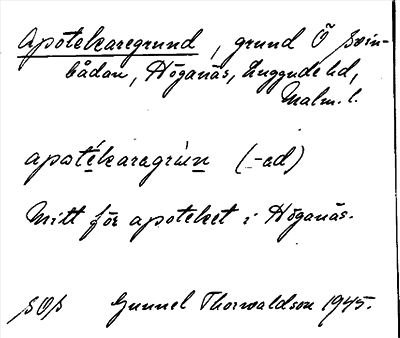 Apotekaregrund, grund Ö Svin-
bådan, Höganäs, Luggude hd,
Malm. l.
apotékaragrùn (-ad)
Mitt för apoteket i Höganäs.
SOS Gunnel Thorwaldson 1945.